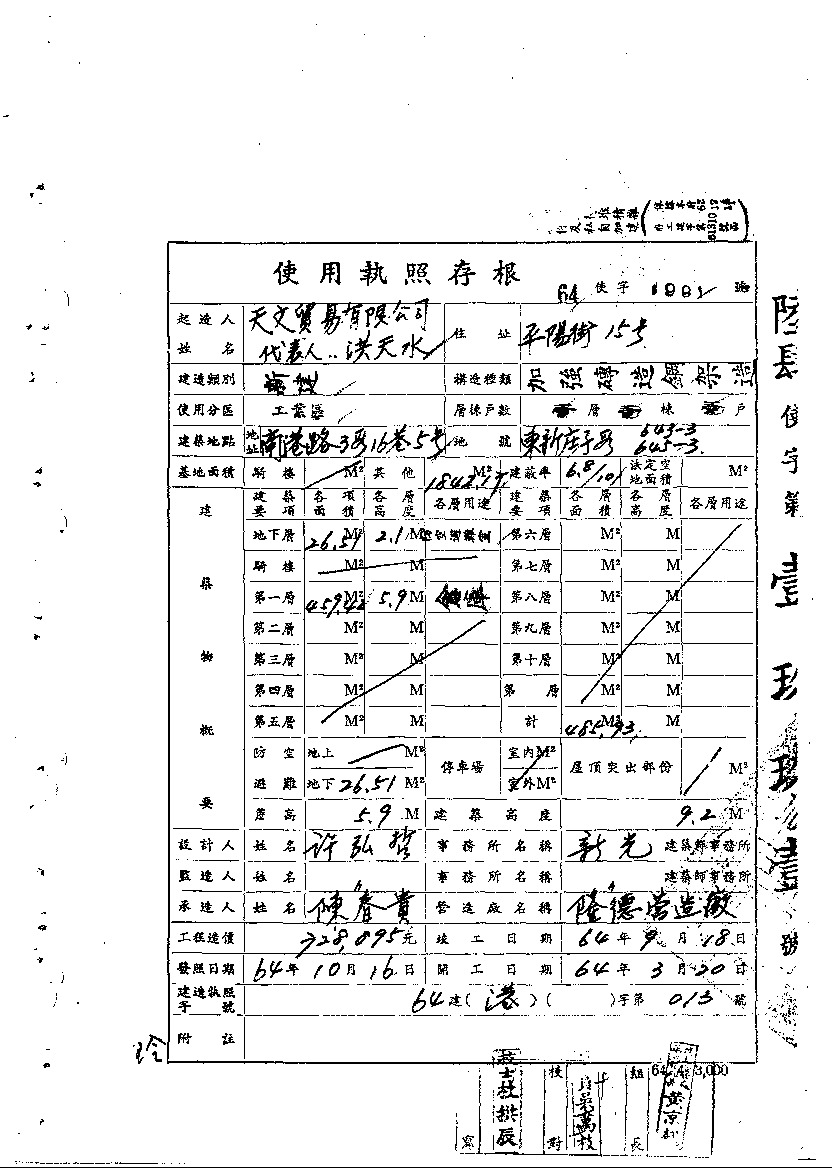 使用執照存根
64 使字 1991 號
起造人 姓名 天文貿易有限公司 代表人..洪天水 住址 平陽街15号
建造類別 新建 構造種類 加強磚造鋼架造
使用分區 工業區 層棟戶數 層 棟 戶
建築地點 地址 南港路3段16巷5号 地號 東新庄子段 643-3 645-3
基地面積 騎樓 M² 其他 M² 建蔽率 6.8/10 法定空地面積 M²
建築物概要
建築要項 各項面積 各層高度 各層用途 建築要項 各層面積 各層高度 各層用途
地下層 26.51 M² 2.1 M 第六層 M² M
騎樓 M² M 第七層 M² M
第一層 459.42 M² 5.9 M 第八層 M² M
第二層 M² M 第九層 M² M
第三層 M² M 第十層 M² M
第四層 M² M 第 層 M² M
第五層 M² M 計 485.93 M² M
防空避難 地上 M² 停車場 室內 M² 屋頂突出部份 M²
地下 26.51 M² 室外 M²
簷高 5.9 M 建築高度 9.2 M
設計人 姓名 許弘哲 事務所名稱 新光 建築師事務所
監造人 姓名 事務所名稱 建築師事務所
承造人 姓名 陳春貴 營造廠名稱 隆德營造廠
工程造價 728,895元 竣工日期 64年9月18日
發照日期 64年10月16日 開工日期 64年3月20日
建造執照字號 64建(港)( )字第013號
附註
玲
64. 4. 3,000
寫 校對 組長
使字第壹玖玖壹號